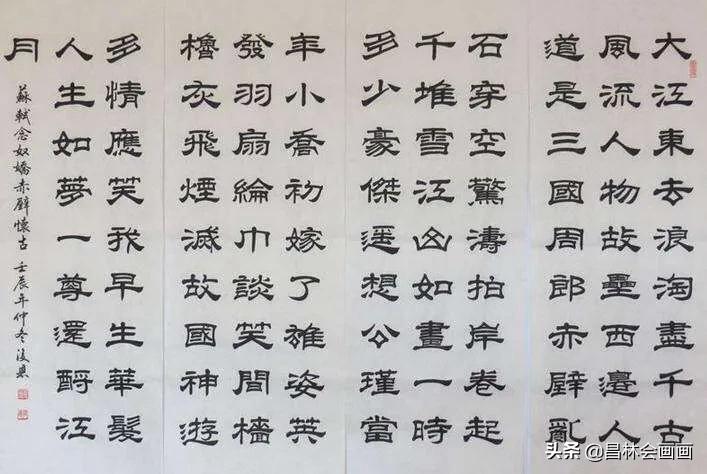 大江東去浪淘盡千古
風流人物故壘西邊人
道是三國周郎赤壁亂
石穿空驚濤拍岸卷起
千堆雪江山如畫一時
多少豪傑遥想公瑾當
年小喬初嫁了雄姿英
發羽扇綸巾談笑間檣
櫓灰飛煙滅故國神遊
多情應笑我早生華髮
人生如夢一尊還酹江
月
蘇軾念奴嬌赤壁懷古 壬辰年仲冬
头条 @昌林会画画